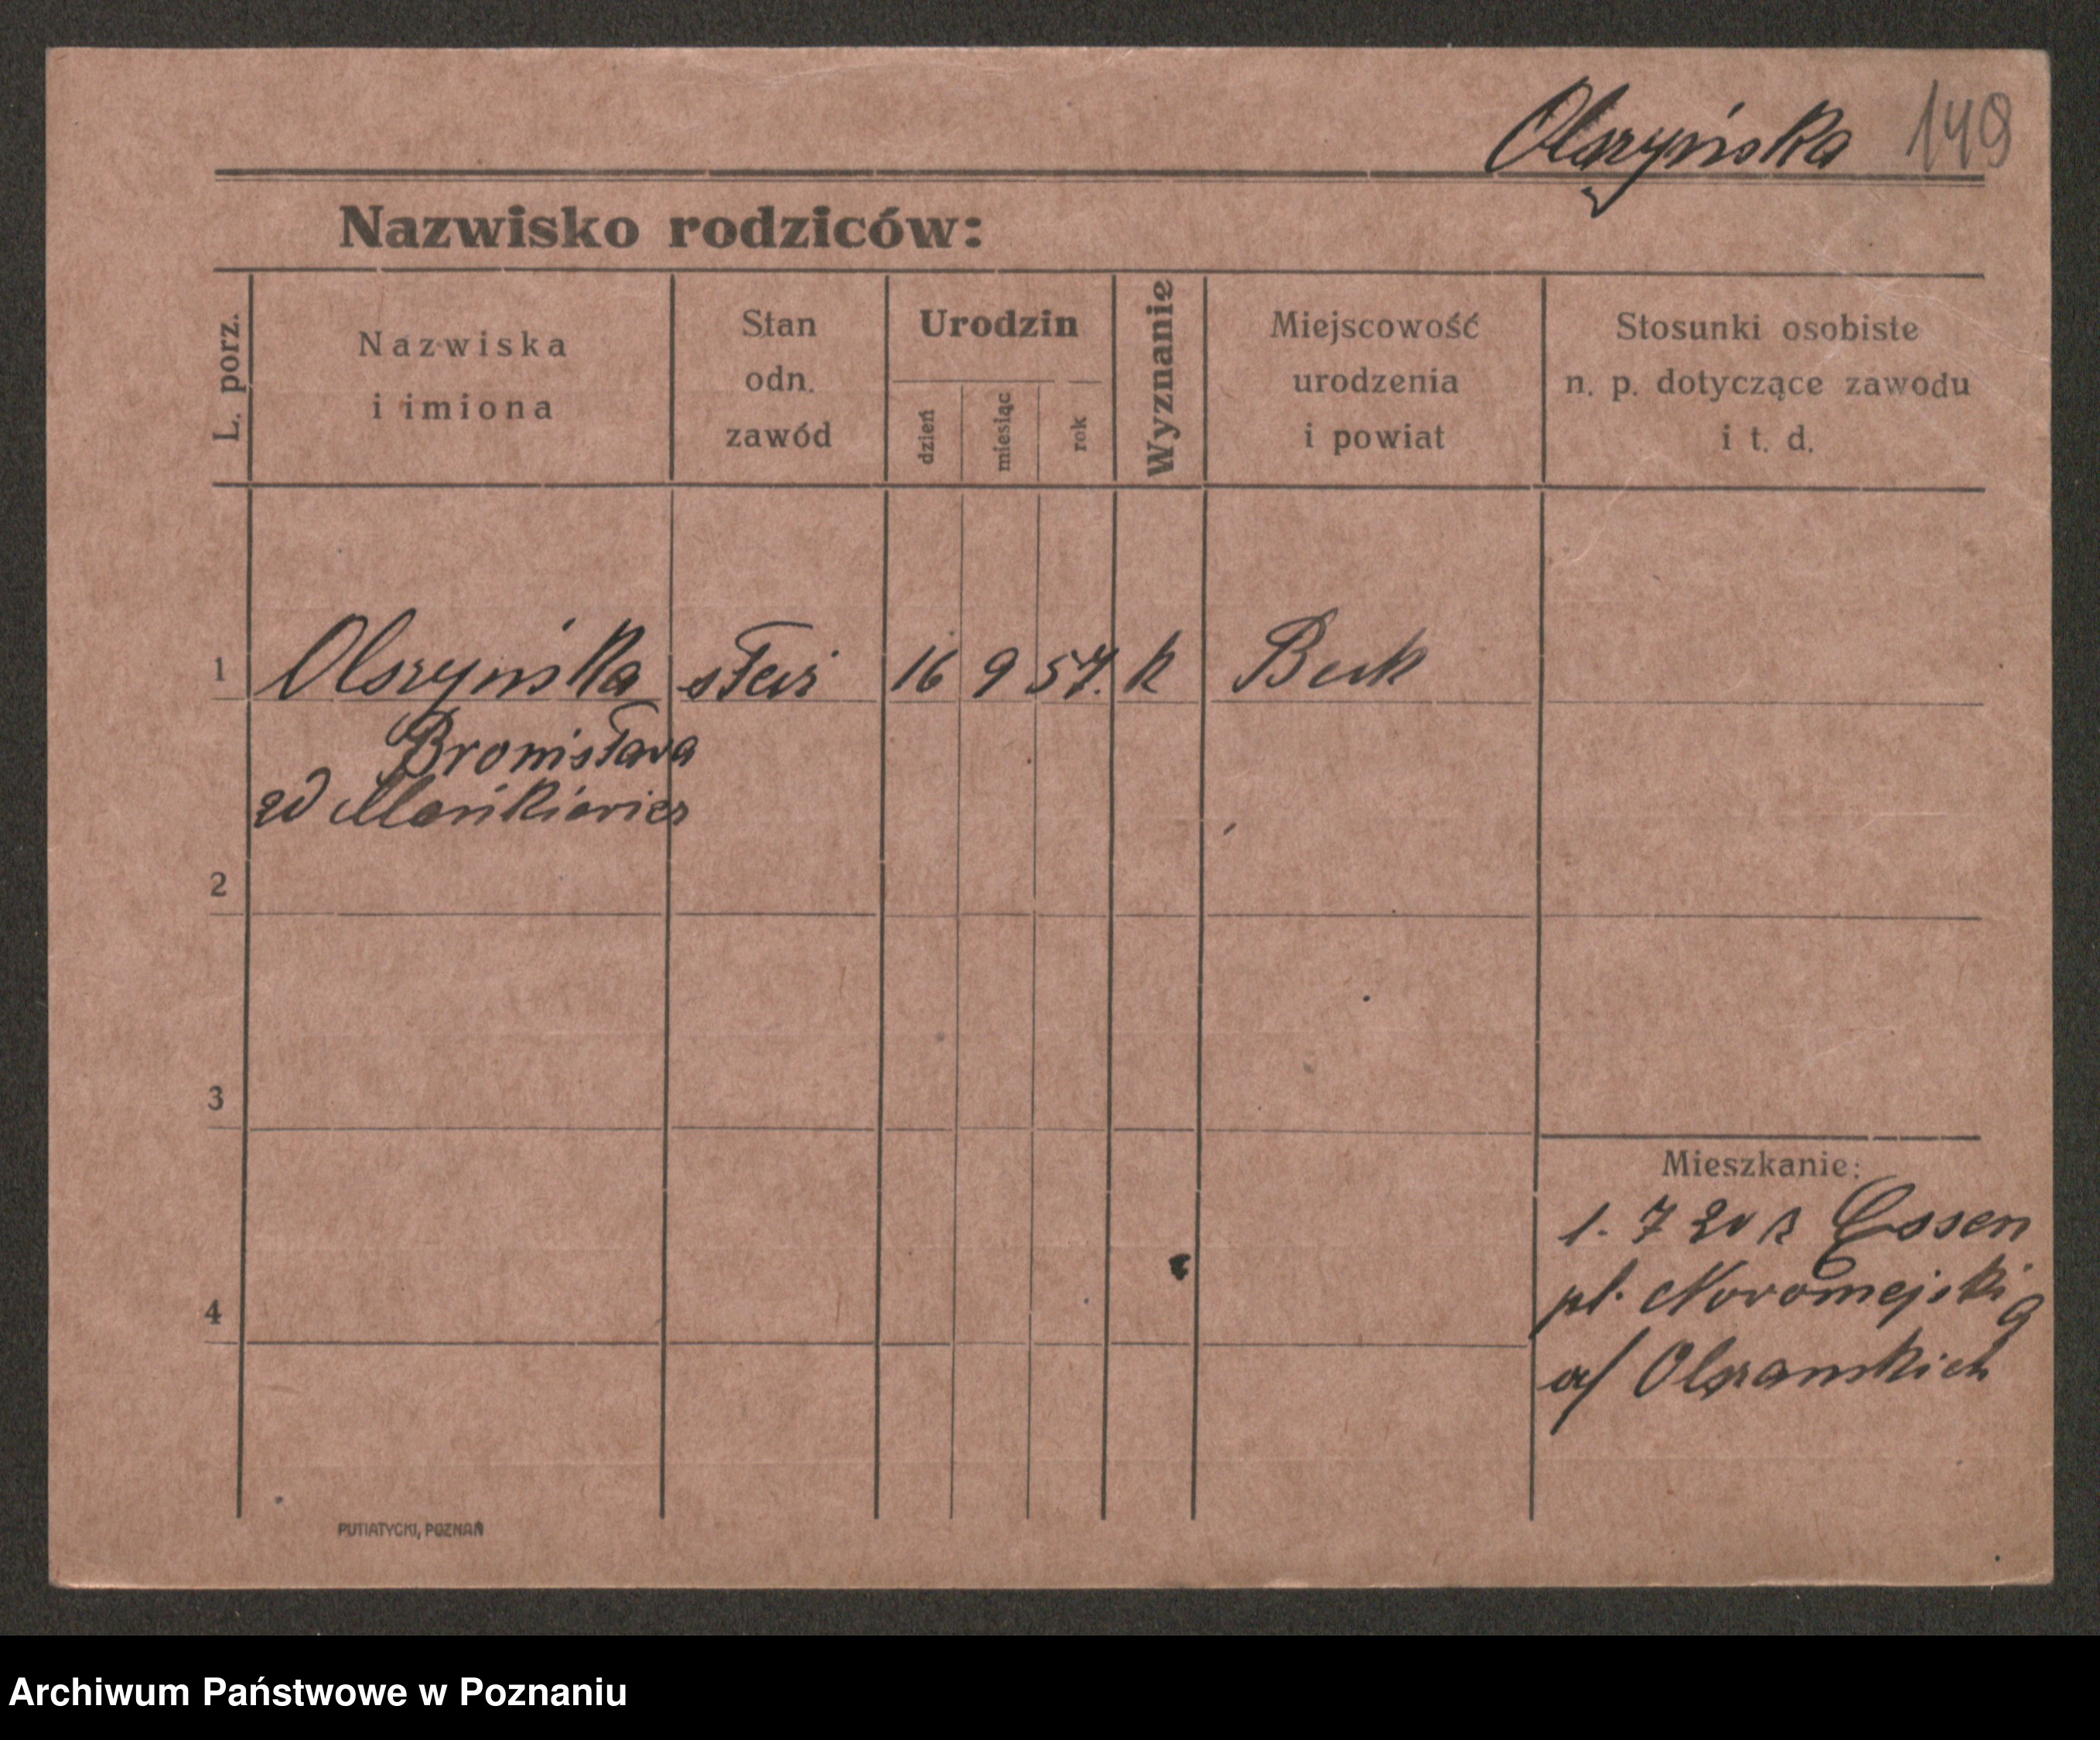 Olszyńska 149
Nazwisko rodziców:
L. porz.
Nazwiska
i imiona
Stan
odn.
zawód
Urodzin
dzień
miesiąc
rok
Wyznanie
Miejscowość
urodzenia
i powiat
Stosunki osobiste
n. p. dotyczące zawodu
i t. d.
1 Olszyńska 16 9 57. k Buk
Bronisława
zd Mańkiewicz
2
3
Mieszkanie:
1. 7 20 z Essen
pl. Nowomejski 9
4
Olszanskich
PUTIATYCKI, POZNAŃ
Archiwum Państwowe w Poznaniu